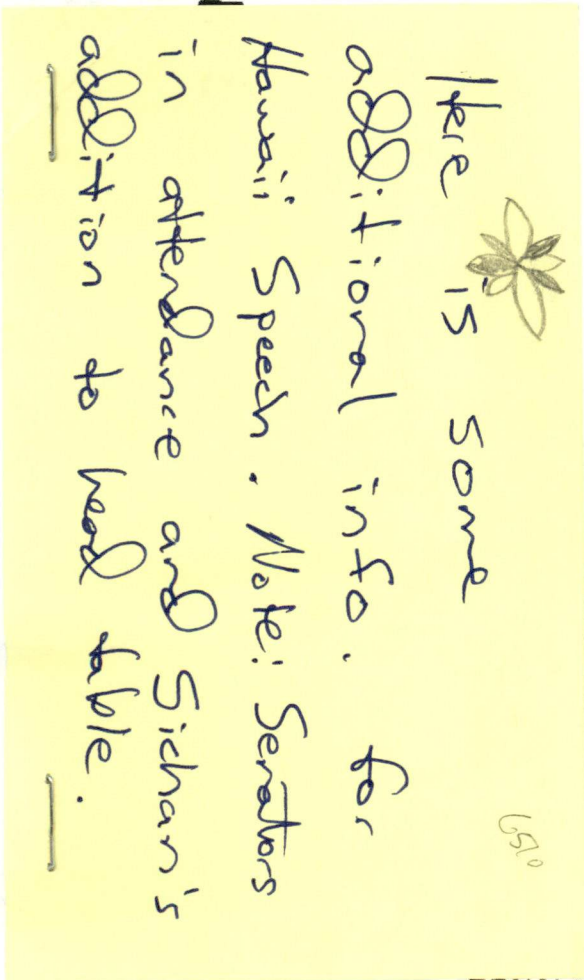 Here is some
additional info. for
Hawaii Speech. Note: Senators
in attendance and Sichan's
addition to head table.